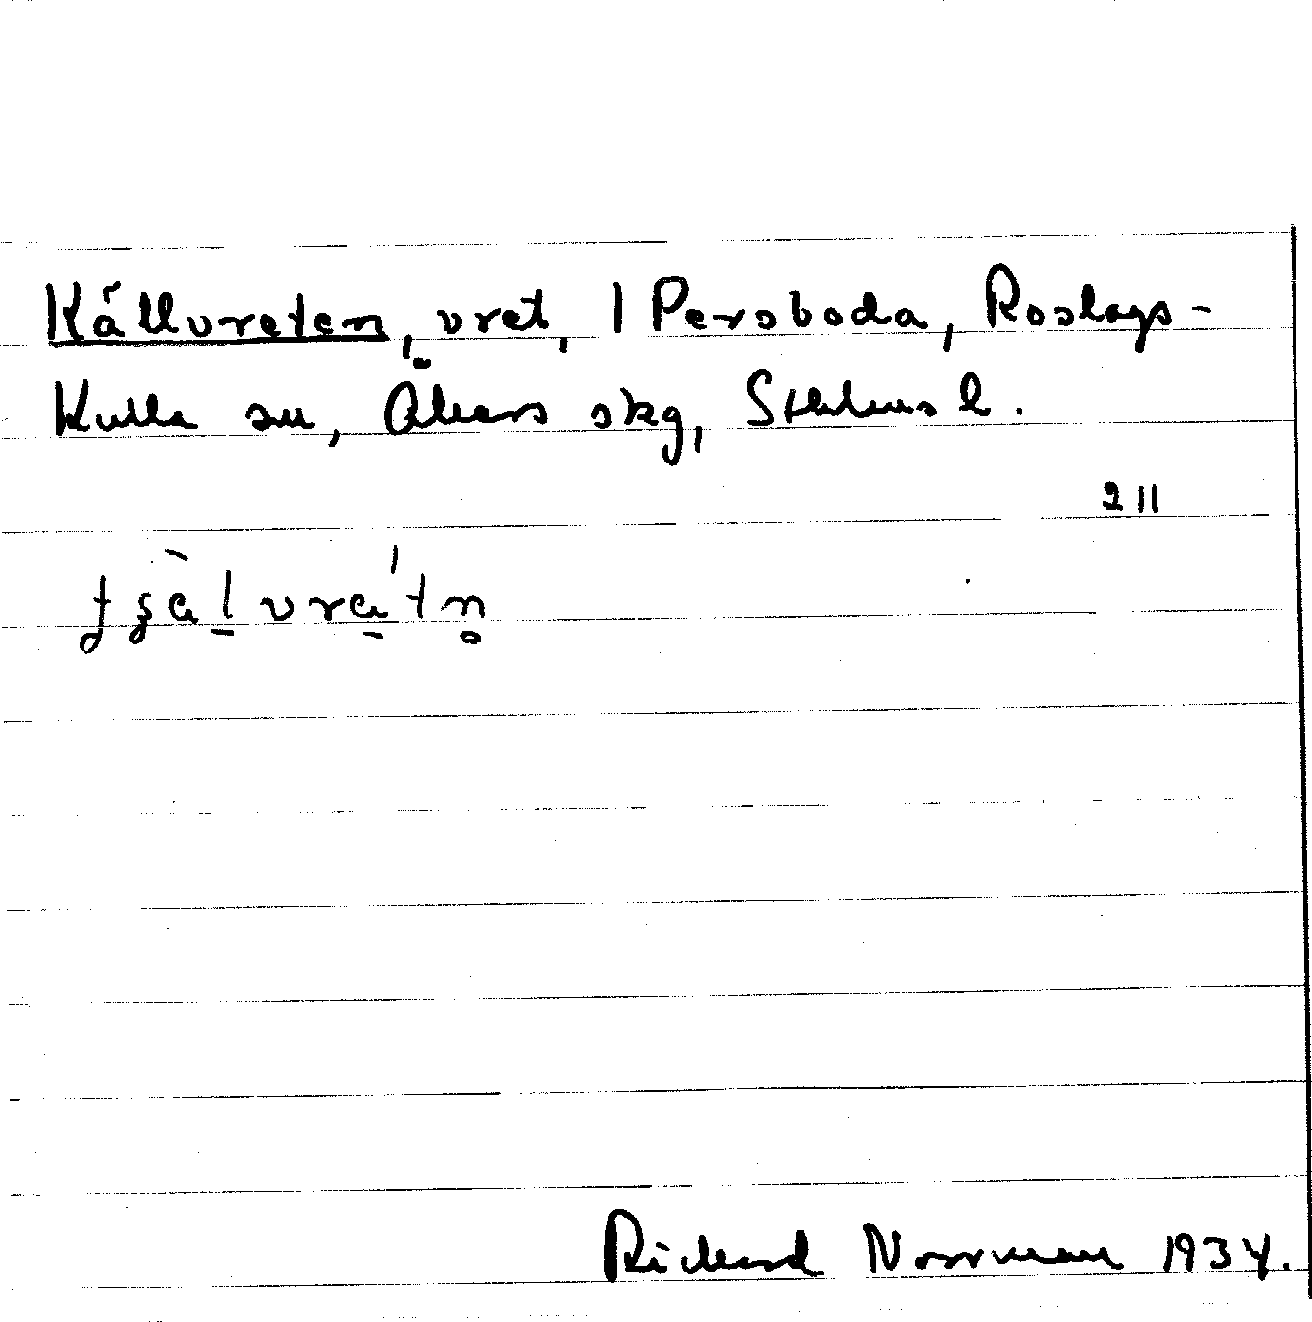 Källvreten, vret, i Persboda, Roslags-
Kulla sn, Åkers skg, Sthlms l.
211
Richard Norrman 1934.